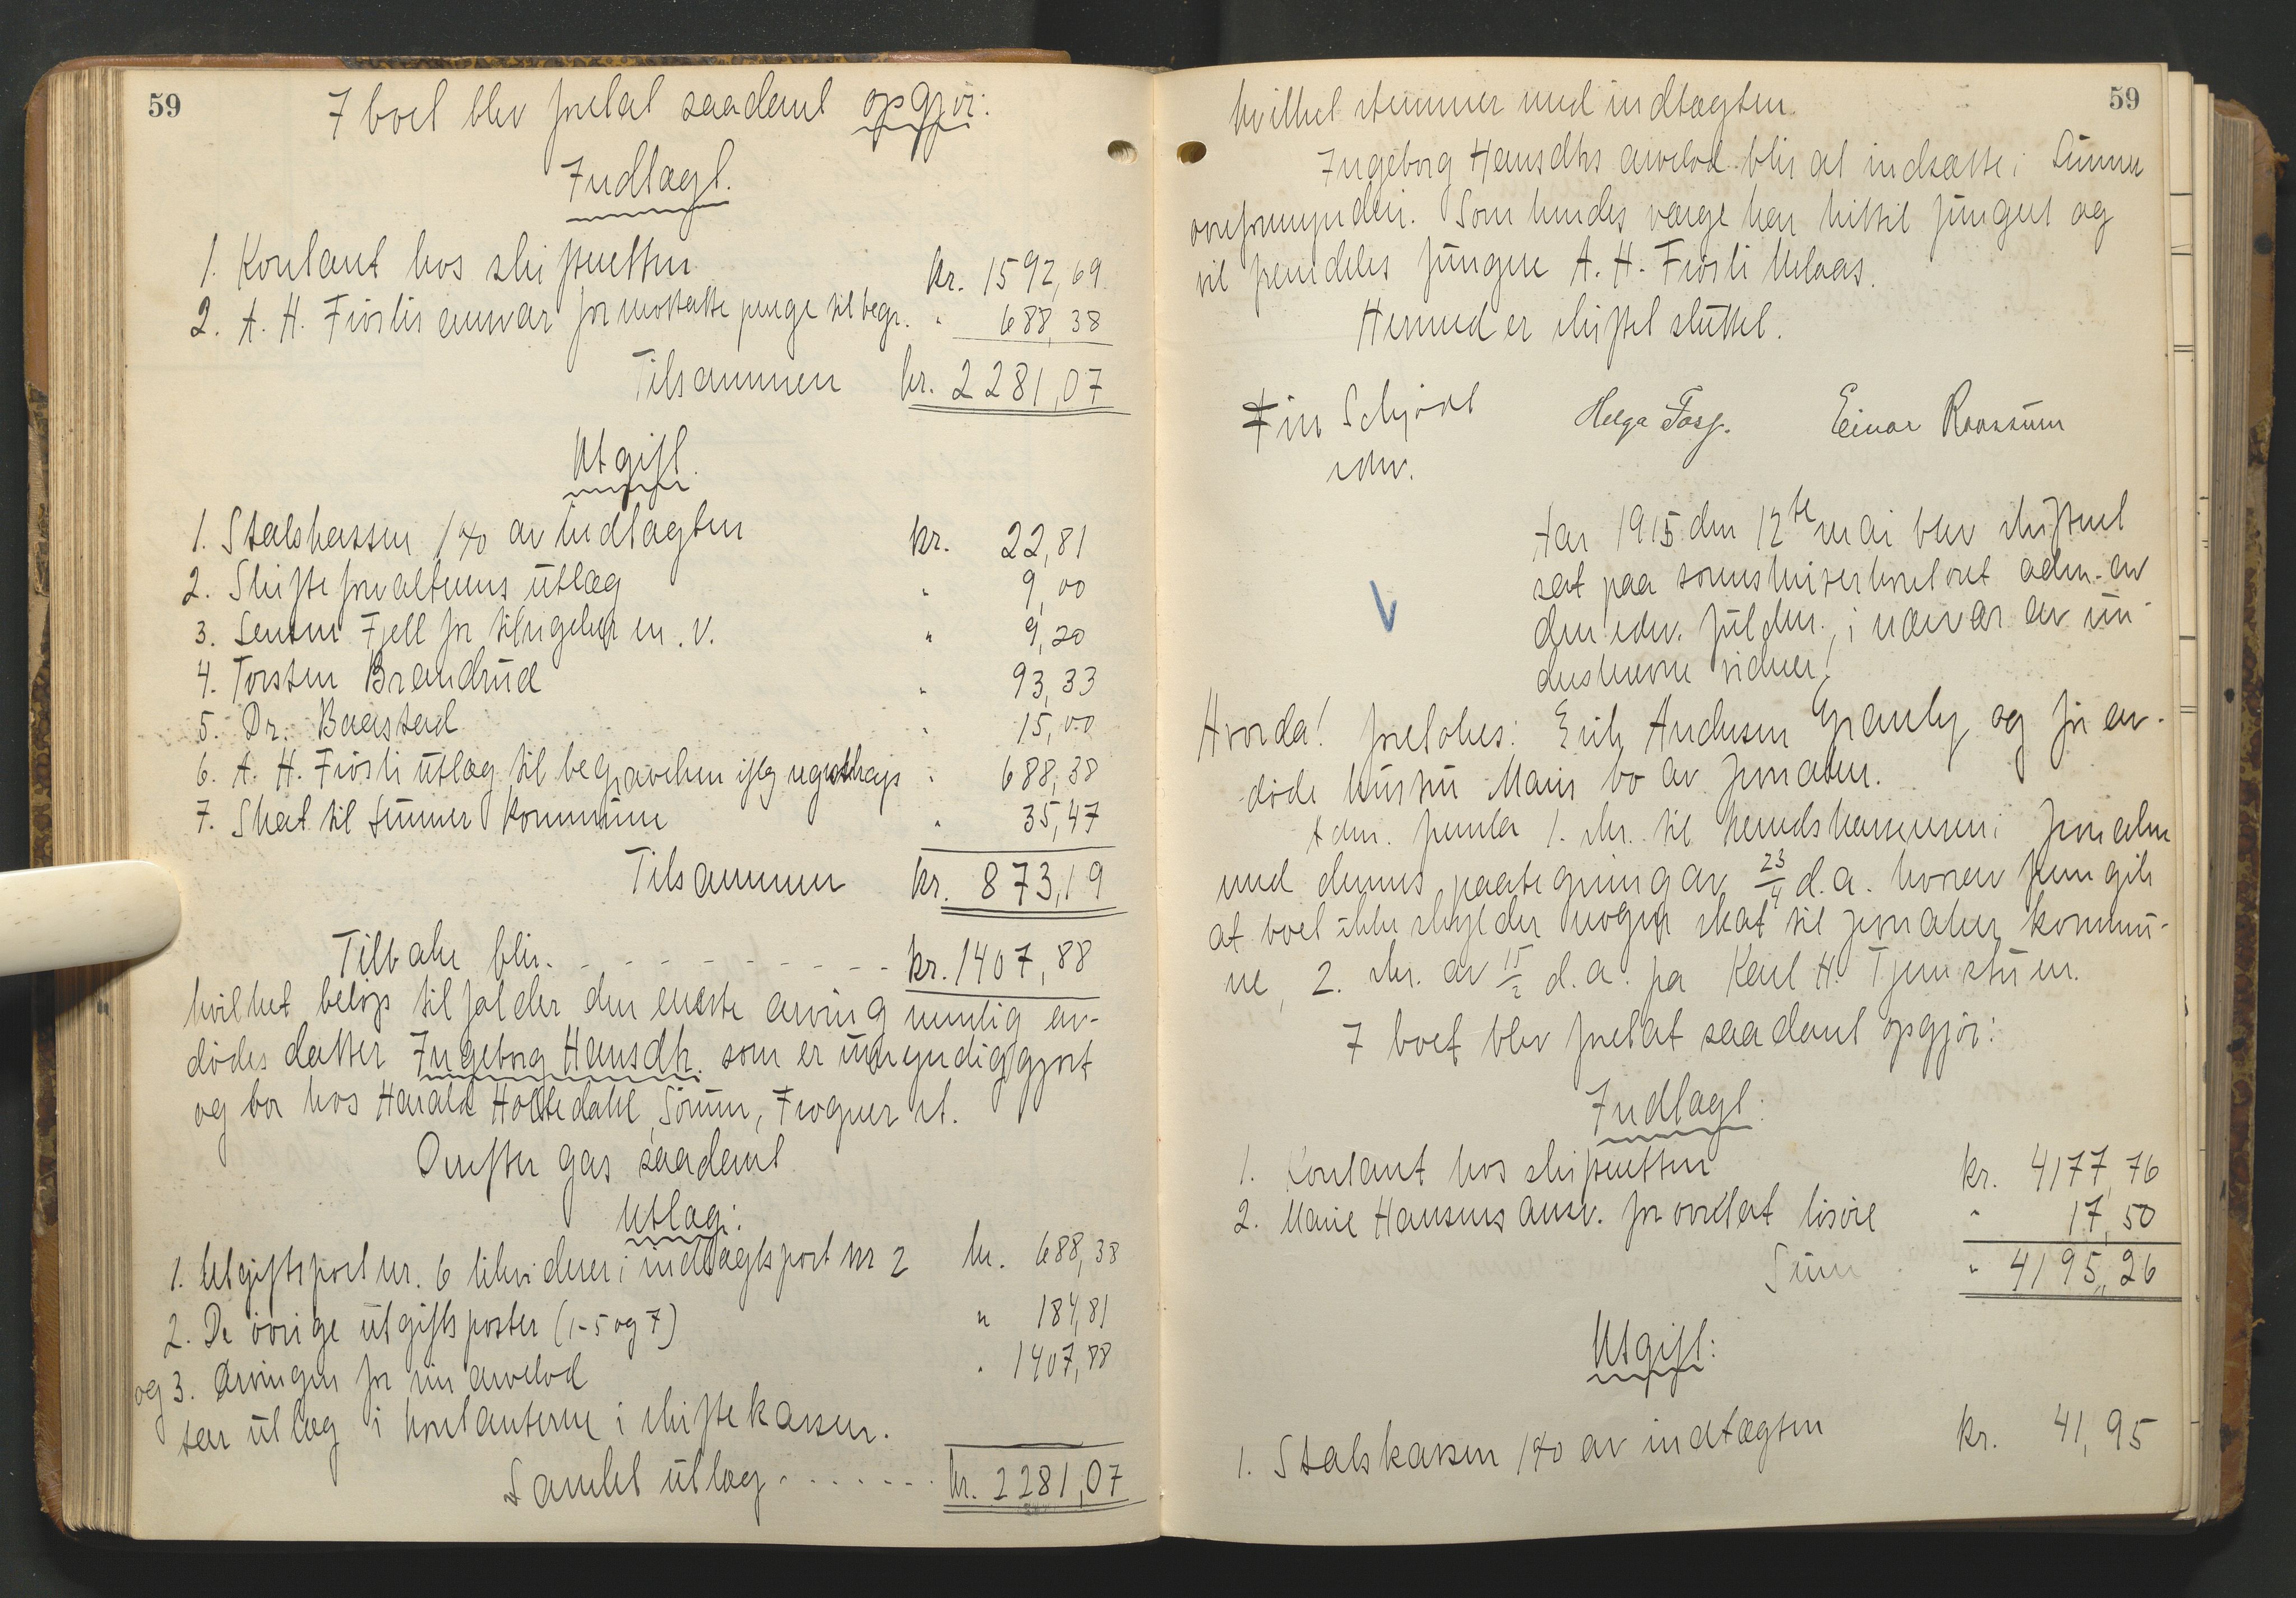 59
I boet blev foretat saadant opgjør:
Indtægt.
1. Kontant hos skifteretten kr. 1592,69
2. A. H. Fiøslis ansvar for mottatte penge til begr. " 688,38
Tilsammen kr. 2281,07
Utgift.
1. Statskassen 1% av indtægten kr. 22,81
2. Skifteforvalterens utlæg " 9,00
3. Lensm. Fjell for tilsigelser m.v. " 9,20
4. Torsten Brandrud " 93,33
5. Dr. Baastad " 15,00
6. A. H. Fiøsli utlæg til begravelsen ifølg regnskap " 688,38
7. Skat til Lunner kommune " 35,47
Tilsammen kr. 873,19
Tilbake blir - - - - - - - - - - kr. 1407,88
hvilket beløp tilfalder den eneste arving nemlig av-
dødes datter Ingeborg Hansdtr. som er umyndiggjort
og bor hos Harald Holtedahl, Sørum, Frogner st.
Derefter gas saadant
Utlæg:
1. Utgiftspost nr. 6 likviderer i indtægtspost nr 2 kr. 688,38
2. De øvrige utgiftsposter (1-5 og 7) " 184,81
og 3. Arvingen for sin arvelod " 1407,88
tar utlæg i kontanterne i skiftekassen.
Samlet utlæg . . . . . . . kr. 2281,07
59
hvilket stemmer med indtægten.
Ingeborg Hansdtrs arvelod blir at indsætte i Lunner
overformynderi. Som hendes værge har hittil fungert og
vil fremdeles fungere A. H. Fiøsli Velaas.
Hermed er skiftet sluttet.
Fin Schjødt Helga Fosp. Einar Raassum
edsv.
Aar 1915 den 12te mai blev skifteret
sat paa sorenskriverkontoret adm. av
den edsv. fuldm. i nærvær av un-
derskrevne vidner!
Hvorda! foretokes: Erik Andersen Granly og før av-
døde hustru Maris bo av Jevnaker.
Adm. fremla 1. skr. til herredskassereren i Jevnaker
med dennes paategning av 23/4 d.a. hvorav fremgik
at boet ikke skylder noget skat til Jevnaker kommu-
ne, 2. skr. av 15/2 d.a. fra Karl H. Tjernstuen.
I boet blev foretat saadant opgjør:
Indtægt:
1. Kontant hos skifteretten kr. 4177,76
2. Marie Hansens ansv. for overtat løsøre " 17,50
Sum " 4195,26
Utgift:
1. Statskassen 1% av indtægten kr. 41,95